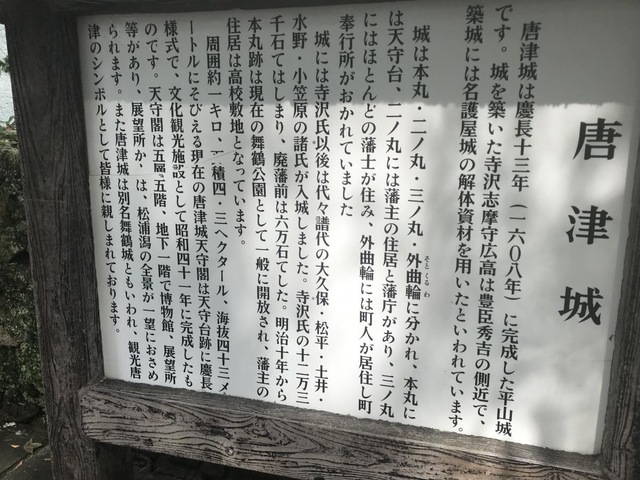 唐津城
唐津城は慶長十三年(一六〇八年)に完成した平山城
です。城を築いた寺沢志摩守広高は豊臣秀吉の側近で、
築城には名護屋城の解体資材を用いたといわれています。
城は本丸・二ノ丸・三ノ丸・外曲輪に分かれ、本丸に
そとくるわ
は天守台、二ノ丸には藩主の住居と藩庁があり、三ノ丸
にはほとんどの藩士が住み、外曲輪には町人が居住し町
奉行所がおかれていました
城には寺沢氏以後は代々譜代の大久保・松平・土井・
水野・小笠原の諸氏が入城しました。寺沢氏の十二万三
千石てはしまり、廃藩前は六万石てした。明治十年から
本丸跡は現在の舞鶴公園として一般に開放され、藩主の
住居は高校敷地となっています。
周囲約一キロ、積四・三ヘクタール、海抜四十三メ
ートルにそびえる現在の唐津城天守閣は天守台跡に慶長
様式で、文化観光施設として昭和四十一年に完成したも
のです。天守閣は五層五階、地下一階で博物館、展望所
等があり、展望所か は、松浦潟の全景が一望におさめ
られます。また唐津城は別名舞鶴城ともいわれ、観光唐
津のシンボルとして皆様に親しまれております。